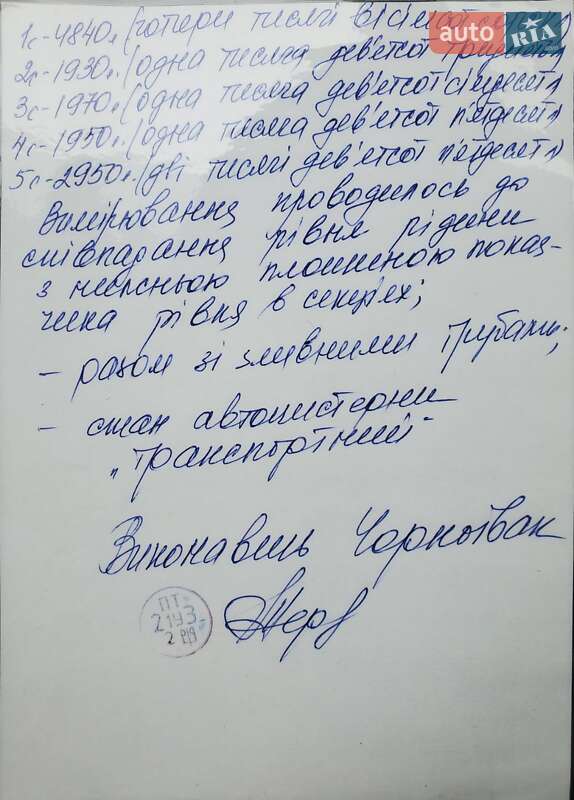 1с-4840л (чотири тисячі вісімсот сорок)
auto RIA
2с-1930л. (одна тисяча дев'ятсот тридцять)
3с-1970л. (одна тисяча дев'ятсот сімдесят)
4с-1950л. (одна тисяча дев'ятсот п'ятдесят)
5с-2950л. (дві тисячі дев'ятсот п'ятдесят)
Вимірювання проводилось до
співпадання рівня рідини
з нижньою площиною показ-
чика рівня в секціях;
- разом зі зливними трубами;
- стан автоцистерни
"Транспортний"
Виконавець Чорноівак
ПТ
2193